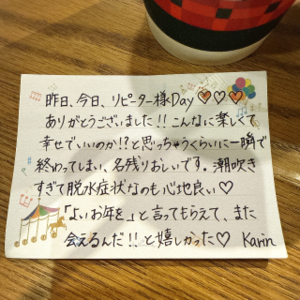 昨日、今日、リピーター様Day♡♡♡
ありがとうございました!! こんなに楽しくて
幸せでいいのか!?と思っちゃうくらいに一瞬で
終わってしまい、名残りおしいです。潮吹き
すぎて脱水症状なのも心地良い♡
「よいお年を」と言ってもらえて、また
会えるんだ!!と嬉しかった♡ Karin